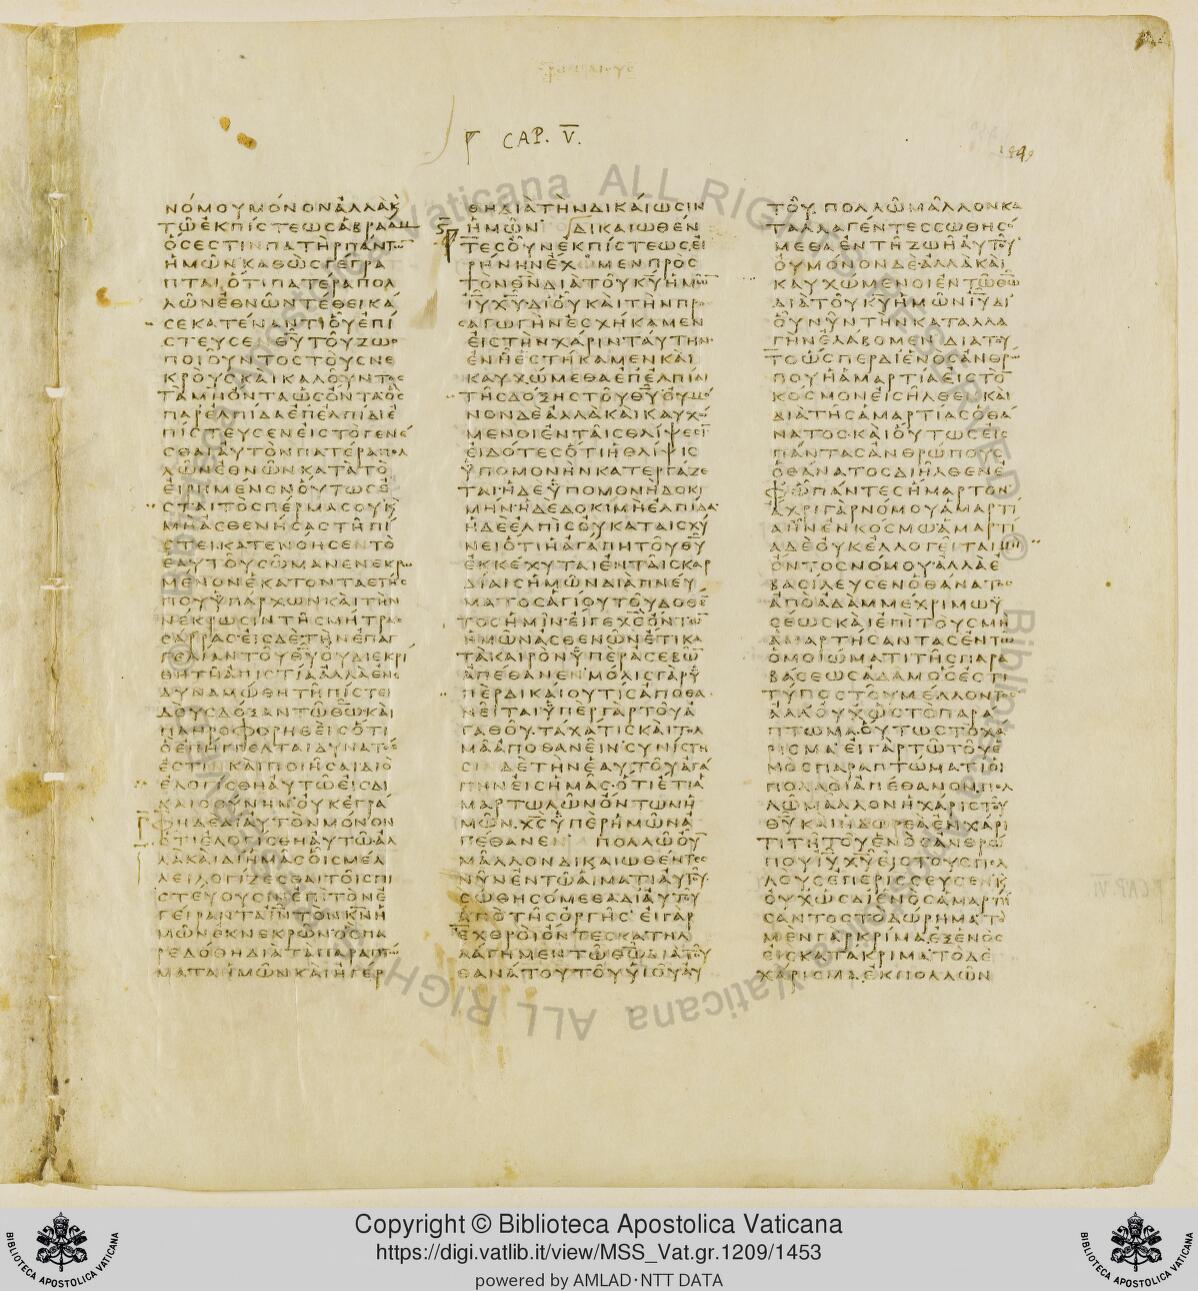 CAP. V.
ΝΟΜΟΥ ΜΟΝΟΝ ΑΛΛΑ Κ
ΤΩ ΕΚ ΠΙΣΤΕΩΣ ΑΒΡΑΑΜ
ΟΣ ΕΣΤΙΝ ΠΑΤΗΡ ΠΑΝΤΩ
ΗΜΩΝ ΚΑΘΩΣ ΓΕΓΡΑ
ΠΤΑΙ ΟΤΙ ΠΑΤΕΡΑ ΠΟΛ
ΛΩΝ ΕΘΝΩΝ ΤΕΘΕΙΚΑ
ΣΕ ΚΑΤΕΝΑΝΤΙ ΟΥ ΕΠΙ
ΣΤΕΥΣΕ ΘΥ ΤΟΥ ΖΩΟ
ΠΟΙΟΥΝΤΟΣ ΤΟΥΣ ΝΕ
ΚΡΟΥΣ ΚΑΙ ΚΑΛΟΥΝΤΟΣ
ΤΑ ΜΗ ΟΝΤΑ ΩΣ ΟΝΤΑ ΟΣ
ΠΑΡ ΕΛΠΙΔΑ ΕΠ ΕΛΠΙΔΙ Ε
ΠΙΣΤΕΥΣΕΝ ΕΙΣ ΤΟ ΓΕΝΕ
ΣΘΑΙ ΑΥΤΟΝ ΠΑΤΕΡΑ ΠΟΛ
ΛΩΝ ΕΘΝΩΝ ΚΑΤΑ ΤΟ
ΕΙΡΗΜΕΝΟΝ ΟΥΤΩΣ Ε
ΣΤΑΙ ΤΟ ΣΠΕΡΜΑ ΣΟΥ Κ
ΜΗ ΑΣΘΕΝΗΣΑΣ ΤΗ ΠΙ
ΣΤΕΙ ΚΑΤΕΝΟΗΣΕΝ ΤΟ
ΕΑΥΤΟΥ ΣΩΜΑ ΝΕΝΕΚΡΩ
ΜΕΝΟΝ ΕΚΑΤΟΝΤΑΕΤΗΣ
ΠΟΥ ΥΠΑΡΧΩΝ ΚΑΙ ΤΗΝ
ΝΕΚΡΩΣΙΝ ΤΗΣ ΜΗΤΡΑΣ
ΣΑΡΡΑΣ ΕΙΣ ΔΕ ΤΗΝ ΕΠΑΓ
ΓΕΛΙΑΝ ΤΟΥ ΘΥ ΟΥ ΔΙΕΚΡΙ
ΘΗ ΤΗ ΑΠΙΣΤΙΑ ΑΛΛΑ ΕΝΕ
ΔΥΝΑΜΩΘΗ ΤΗ ΠΙΣΤΕΙ
ΔΟΥΣ ΔΟΞΑΝ ΤΩ ΘΩ ΚΑΙ
ΠΛΗΡΟΦΟΡΗΘΕΙΣ ΟΤΙ
Ο ΕΠΗΓΓΕΛΤΑΙ ΔΥΝΑΤΟΣ
ΕΣΤΙΝ ΚΑΙ ΠΟΙΗΣΑΙ ΔΙΟ
ΕΛΟΓΙΣΘΗ ΑΥΤΩ ΕΙΣ ΔΙ
ΚΑΙΟΣΥΝΗΝ ΟΥΚ ΕΓΡΑ
ΦΗ ΔΕ ΔΙ ΑΥΤΟΝ ΜΟΝΟΝ
ΟΤΙ ΕΛΟΓΙΣΘΗ ΑΥΤΩ ΑΛ
ΛΑ ΚΑΙ ΔΙ ΗΜΑΣ ΟΙΣ ΜΕΛ
ΛΕΙ ΛΟΓΙΖΕΣΘΑΙ ΤΟΙΣ ΠΙ
ΣΤΕΥΟΥΣΙΝ ΕΠΙ ΤΟΝ Ε
ΓΕΙΡΑΝΤΑ ΙΝ ΤΟΝ ΚΝ Η
ΜΩΝ ΕΚ ΝΕΚΡΩΝ ΟΣ ΠΑ
ΡΕΔΟΘΗ ΔΙΑ ΤΑ ΠΑΡΑΠΤΩ
ΜΑΤΑ ΗΜΩΝ ΚΑΙ ΗΓΕΡ
ΘΗ ΔΙΑ ΤΗΝ ΔΙΚΑΙΩΣΙΝ
ΗΜΩΝ ΔΙΚΑΙΩΘΕΝ
ΤΕΣ ΟΥΝ ΕΚ ΠΙΣΤΕΩΣ ΕΙ
ΡΗΝΗΝ ΕΧΩΜΕΝ ΠΡΟΣ
ΤΟΝ ΘΝ ΔΙΑ ΤΟΥ ΚΥ ΗΜΩ
ΙΥ ΧΥ ΔΙ ΟΥ ΚΑΙ ΤΗΝ ΠΡΟ
ΣΑΓΩΓΗΝ ΕΣΧΗΚΑΜΕΝ
ΕΙΣ ΤΗΝ ΧΑΡΙΝ ΤΑΥΤΗΝ
ΕΝ Η ΕΣΤΗΚΑΜΕΝ ΚΑΙ
ΚΑΥΧΩΜΕΘΑ ΕΠ ΕΛΠΙΔΙ
ΤΗΣ ΔΟΞΗΣ ΤΟΥ ΘΥ ΟΥ ΜΟ
ΝΟΝ ΔΕ ΑΛΛΑ ΚΑΙ ΚΑΥΧΩ
ΜΕΝΟΙ ΕΝ ΤΑΙΣ ΘΛΙΨΕΣΙ
ΕΙΔΟΤΕΣ ΟΤΙ Η ΘΛΙΨΙΣ
ΥΠΟΜΟΝΗΝ ΚΑΤΕΡΓΑΖΕ
ΤΑΙ Η ΔΕ ΥΠΟΜΟΝΗ ΔΟΚΙ
ΜΗΝ Η ΔΕ ΔΟΚΙΜΗ ΕΛΠΙΔΑ
Η ΔΕ ΕΛΠΙΣ ΟΥ ΚΑΤΑΙΣΧΥ
ΝΕΙ ΟΤΙ Η ΑΓΑΠΗ ΤΟΥ ΘΥ
ΕΚΚΕΧΥΤΑΙ ΕΝ ΤΑΙΣ ΚΑΡ
ΔΙΑΙΣ ΗΜΩΝ ΔΙΑ ΠΝΕΥ
ΜΑΤΟΣ ΑΓΙΟΥ ΤΟΥ ΔΟΘΕ
ΤΟΣ ΗΜΙΝ ΕΙ ΓΕ ΧΣ ΟΝΤΩ
ΗΜΩΝ ΑΣΘΕΝΩΝ ΕΤΙ ΚΑ
ΤΑ ΚΑΙΡΟΝ ΥΠΕΡ ΑΣΕΒΩ
ΑΠΕΘΑΝΕΝ ΜΟΛΙΣ ΓΑΡ Υ
ΠΕΡ ΔΙΚΑΙΟΥ ΤΙΣ ΑΠΟΘΑ
ΝΕΙΤΑΙ ΥΠΕΡ ΓΑΡ ΤΟΥ Α
ΓΑΘΟΥ ΤΑΧΑ ΤΙΣ ΚΑΙ ΤΟΛ
ΜΑ ΑΠΟΘΑΝΕΙΝ ΣΥΝΙΣΤΗ
ΣΙΝ ΔΕ ΤΗΝ ΕΑΥΤΟΥ ΑΓΑ
ΠΗΝ ΕΙΣ ΗΜΑΣ ΟΤΙ ΕΤΙ Α
ΜΑΡΤΩΛΩΝ ΟΝΤΩΝ Η
ΜΩΝ ΧΣ ΥΠΕΡ ΗΜΩΝ Α
ΠΕΘΑΝΕΝ ΠΟΛΛΩ ΟΥ
ΜΑΛΛΟΝ ΔΙΚΑΙΩΘΕΝΤΕΣ
ΝΥΝ ΕΝ ΤΩ ΑΙΜΑΤΙ ΑΥΤΟΥ
ΣΩΘΗΣΟΜΕΘΑ ΔΙ ΑΥΤΟΥ
ΑΠΟ ΤΗΣ ΟΡΓΗΣ ΕΙ ΓΑΡ
ΕΧΘΡΟΙ ΟΝΤΕΣ ΚΑΤΗΛ
ΛΑΓΗΜΕΝ ΤΩ ΘΩ ΔΙΑ ΤΟΥ
ΘΑΝΑΤΟΥ ΤΟΥ ΥΙΟΥ ΑΥ
ΤΟΥ ΠΟΛΛΩ ΜΑΛΛΟΝ ΚΑ
ΤΑΛΛΑΓΕΝΤΕΣ ΣΩΘΗΣΟ
ΜΕΘΑ ΕΝ ΤΗ ΖΩΗ ΑΥΤΟΥ
ΟΥ ΜΟΝΟΝ ΔΕ ΑΛΛΑ ΚΑΙ
ΚΑΥΧΩΜΕΝΟΙ ΕΝ ΤΩ ΘΩ
ΔΙΑ ΤΟΥ ΚΥ ΗΜΩΝ ΙΥ ΔΙ
ΟΥ ΝΥΝ ΤΗΝ ΚΑΤΑΛΛΑ
ΓΗΝ ΕΛΑΒΟΜΕΝ ΔΙΑ ΤΟΥ
ΤΟ ΩΣΠΕΡ ΔΙ ΕΝΟΣ ΑΝΘΡΩ
ΠΟΥ Η ΑΜΑΡΤΙΑ ΕΙΣ ΤΟ
ΚΟΣΜΟΝ ΕΙΣΗΛΘΕΝ ΚΑΙ
ΔΙΑ ΤΗΣ ΑΜΑΡΤΙΑΣ Ο ΘΑ
ΝΑΤΟΣ ΚΑΙ ΟΥΤΩΣ ΕΙΣ
ΠΑΝΤΑΣ ΑΝΘΡΩΠΟΥΣ
Ο ΘΑΝΑΤΟΣ ΔΙΗΛΘΕΝ Ε
Φ Ω ΠΑΝΤΕΣ ΗΜΑΡΤΟΝ
ΑΧΡΙ ΓΑΡ ΝΟΜΟΥ ΑΜΑΡΤΙ
Α ΗΝ ΕΝ ΚΟΣΜΩ ΑΜΑΡΤΙ
Α ΔΕ ΟΥΚ ΕΛΛΟΓΕΙΤΑΙ ΜΗ
ΟΝΤΟΣ ΝΟΜΟΥ ΑΛΛΑ Ε
ΒΑΣΙΛΕΥΣΕΝ Ο ΘΑΝΑΤΟΣ
ΑΠΟ ΑΔΑΜ ΜΕΧΡΙ ΜΩΥ
ΣΕΩΣ ΚΑΙ ΕΠΙ ΤΟΥΣ ΜΗ
ΑΜΑΡΤΗΣΑΝΤΑΣ ΕΝ ΤΩ
ΟΜΟΙΩΜΑΤΙ ΤΗΣ ΠΑΡΑ
ΒΑΣΕΩΣ ΑΔΑΜ Ο ΕΣΤΙ
ΤΥΠΟΣ ΤΟΥ ΜΕΛΛΟΝΤΟΣ
ΑΛΛ ΟΥΧ ΩΣ ΤΟ ΠΑΡΑ
ΠΤΩΜΑ ΟΥΤΩΣ ΤΟ ΧΑ
ΡΙΣΜΑ ΕΙ ΓΑΡ ΤΩ ΤΟΥ Ε
ΝΟΣ ΠΑΡΑΠΤΩΜΑΤΙ ΟΙ
ΠΟΛΛΟΙ ΑΠΕΘΑΝΟΝ ΠΟΛ
ΛΩ ΜΑΛΛΟΝ Η ΧΑΡΙΣ ΤΟΥ
ΘΥ ΚΑΙ Η ΔΩΡΕΑ ΕΝ ΧΑΡΙ
ΤΙ ΤΗ ΤΟΥ ΕΝΟΣ ΑΝΘΡΩ
ΠΟΥ ΙΥ ΧΥ ΕΙΣ ΤΟΥΣ ΠΟΛ
ΛΟΥΣ ΕΠΕΡΙΣΣΕΥΣΕΝ Κ
ΟΥΧ ΩΣ ΔΙ ΕΝΟΣ ΑΜΑΡΤΗ
ΣΑΝΤΟΣ ΤΟ ΔΩΡΗΜΑ ΤΟ
ΜΕΝ ΓΑΡ ΚΡΙΜΑ ΕΞ ΕΝΟΣ
ΕΙΣ ΚΑΤΑΚΡΙΜΑ ΤΟ ΔΕ
ΧΑΡΙΣΜΑ ΕΚ ΠΟΛΛΩΝ
Copyright © Biblioteca Apostolica Vaticana
https://digi.vatlib.it/view/MSS_Vat.gr.1209/1453
powered by AMLAD·NTT DATA